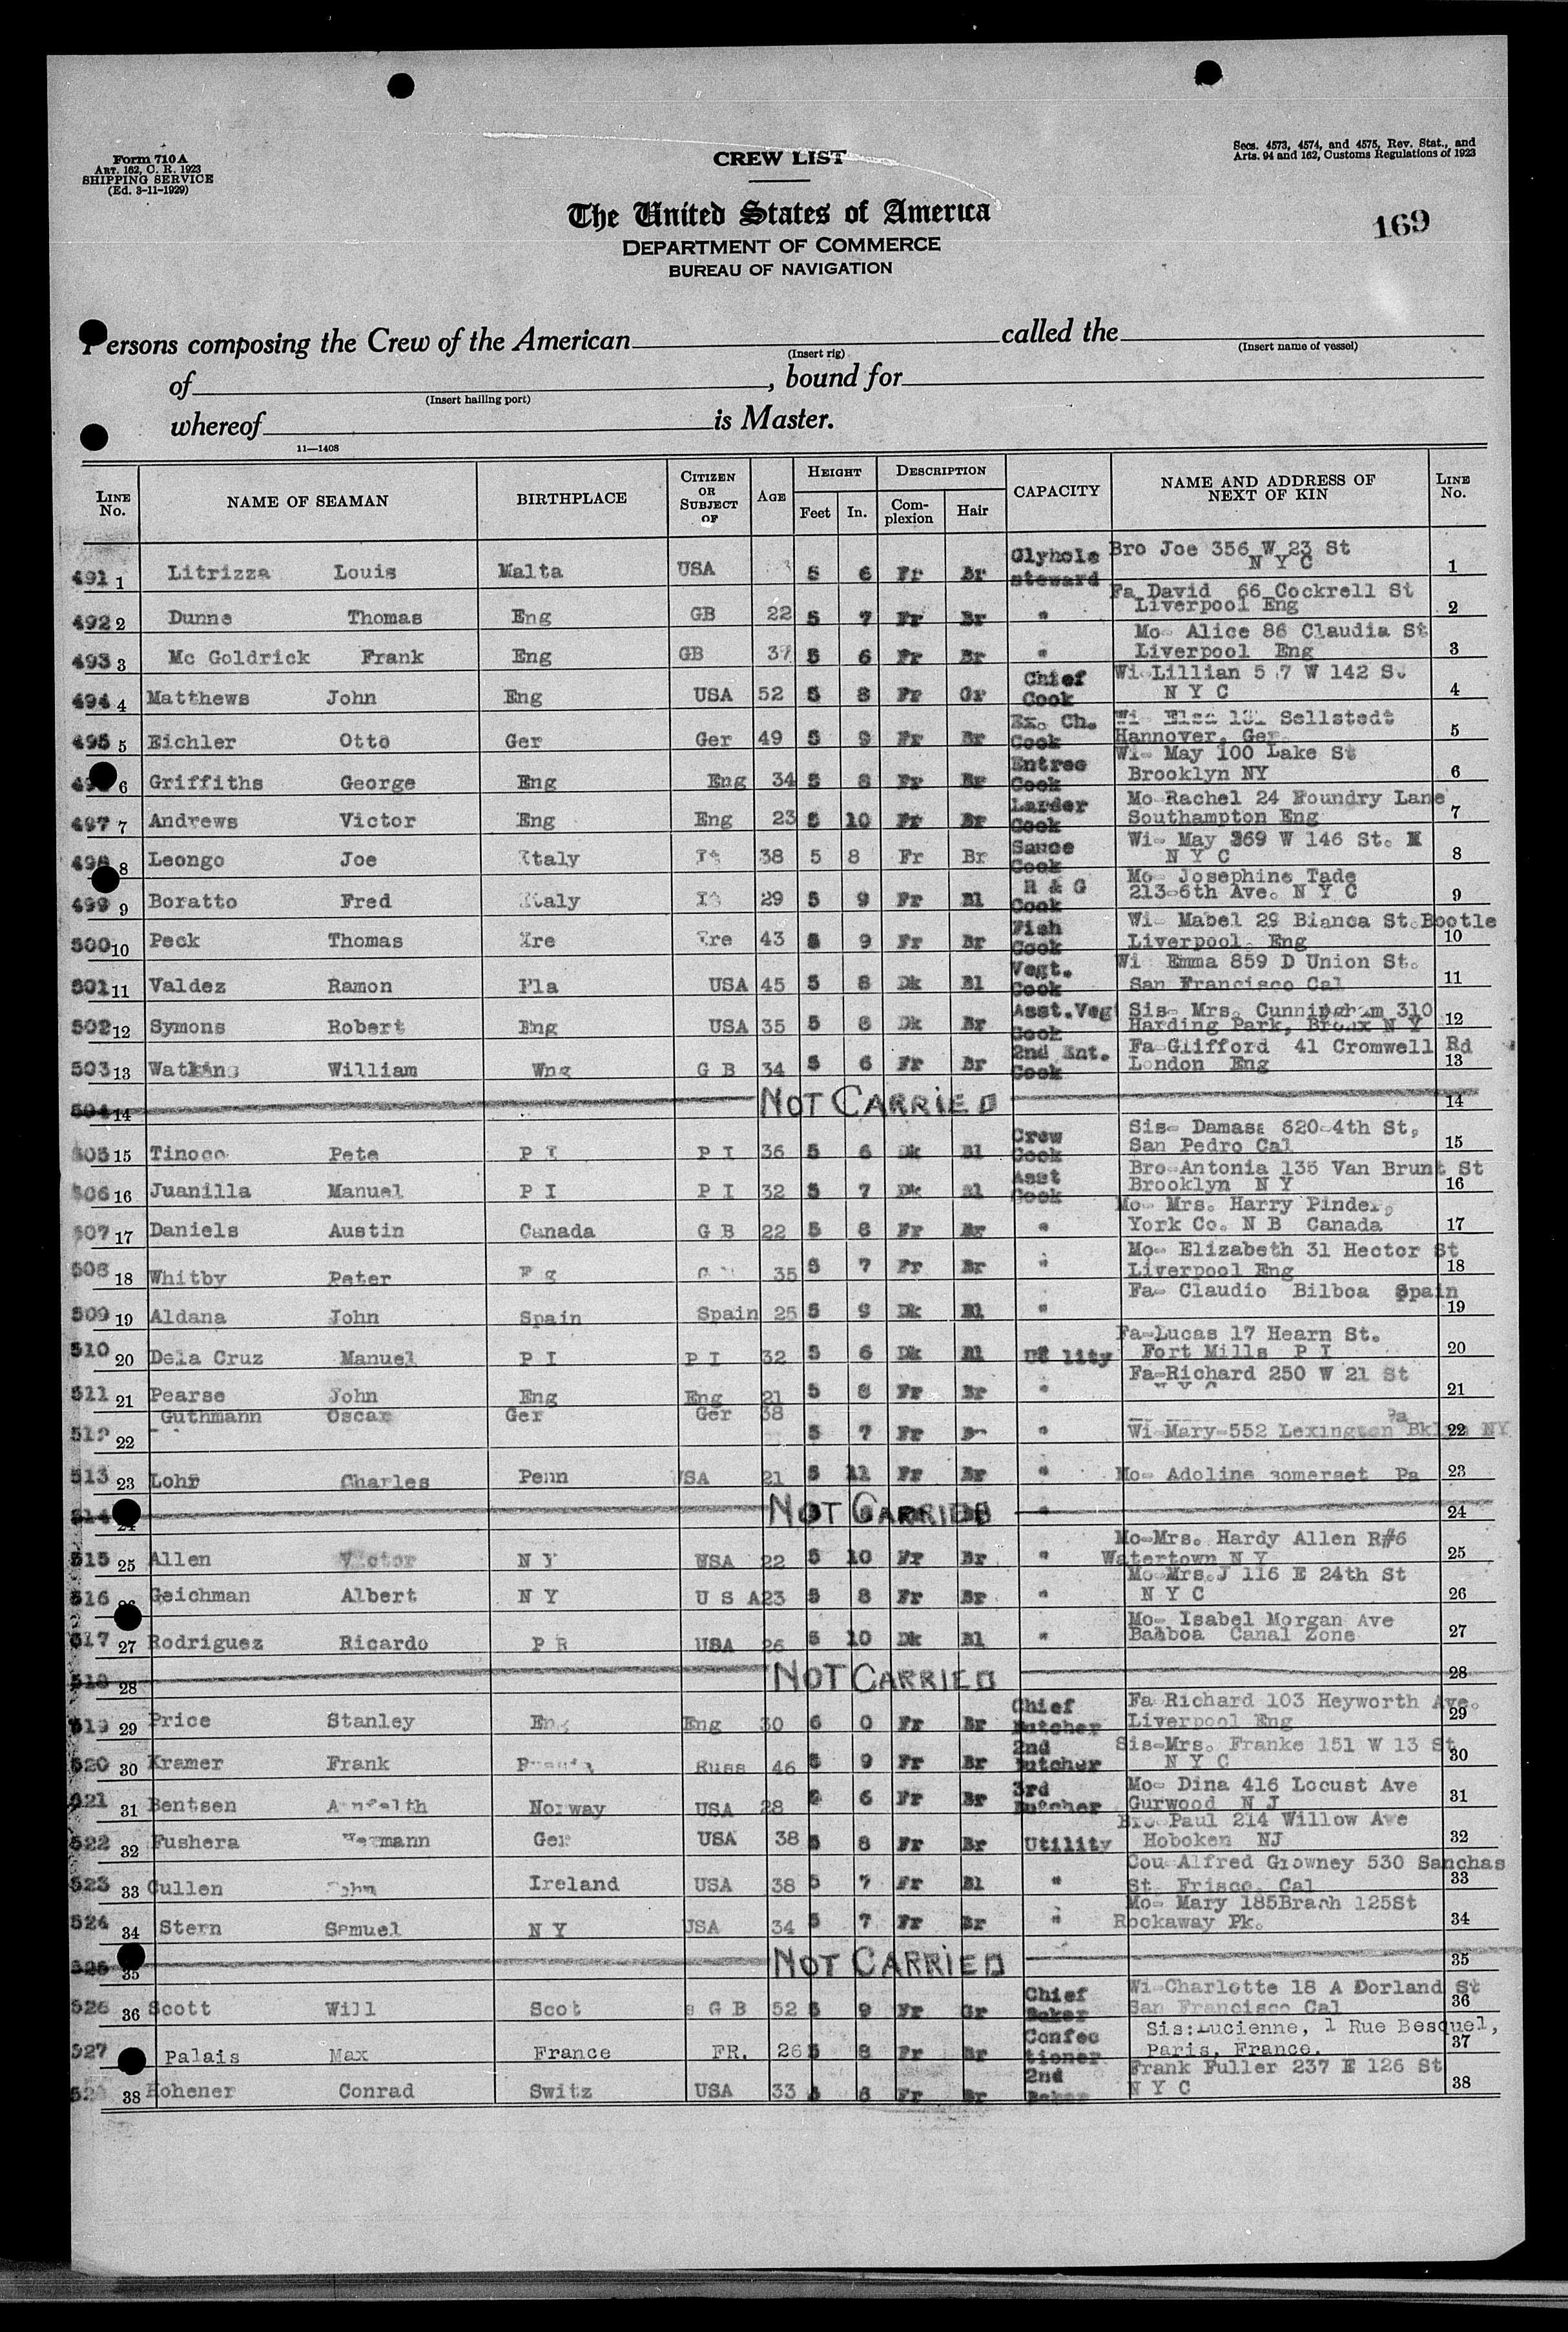 Form 710 A
ART. 162, C. R. 1923
SHIPPING SERVICE
(Ed. 3-11-1929)
CREW LIST
Secs. 4573, 4574, and 4575, Rev. Stat., and
Arts. 94 and 162, Customs Regulations of 1923
The United States of America
DEPARTMENT OF COMMERCE
BUREAU OF NAVIGATION
169
Persons composing the Crew of the American called the
(Insert rig) (Insert name of vessel)
of , bound for
(Insert hailing port)
whereof is Master.
11—1408
LINE No. NAME OF SEAMAN BIRTHPLACE CITIZEN OR SUBJECT OF AGE HEIGHT Feet In. DESCRIPTION Complexion Hair CAPACITY NAME AND ADDRESS OF NEXT OF KIN LINE No.
491 1 Litrizza Louis Malta USA 5 6 Fr Br Glyhole steward Bro Joe 356 W 23 St N Y C 1
492 2 Dunne Thomas Eng GB 22 5 7 Fr Br " Fa David 66 Cockrell St Liverpool Eng 2
493 3 Mc Goldrick Frank Eng GB 37 5 6 Fr Br " Mo- Alice 86 Claudia St Liverpool Eng 3
494 4 Matthews John Eng USA 52 5 8 Fr Gr Chief Cook Wi Lillian W 142 N Y C 4
495 5 Eichler Otto Ger Ger 49 5 9 Fr Br Ex. Ch. Cook Wi- Elsa Sellstedt Hannover, Ger. 5
6 Griffiths George Eng Eng 34 5 8 Fr Br Entree Cook Wi- May 100 Lake St Brooklyn NY 6
497 7 Andrews Victor Eng Eng 23 5 10 Fr Br Larder Cook Mo-Rachel 24 Foundry Lane Southampton Eng 7
498 8 Leongo Joe Italy It 38 5 8 Fr Br Sauce Cook Wi- May 369 W 146 St. N Y C 8
499 9 Boratto Fred Italy It 29 5 9 Fr Bl R & G Cook Mo- Josephine Tade 213-6th Ave. N Y C 9
500 10 Peck Thomas Ire Ire 43 5 9 Fr Br Fish Cook Wi- Mabel 29 Bianca St. Bootle Liverpool Eng 10
501 11 Valdez Ramon Fla USA 45 5 8 Dk Bl Vegt. Cook Wi Emma 859 D Union St. San Francisco Cal 11
502 12 Symons Robert Eng USA 35 5 8 Dk Br Asst.Veg Cook Sis- Mrs. Cunningham 310 Harding Park, Bronx N Y 12
503 13 Watkins William Wng G B 34 5 6 Fr Br 2nd Ent. Cook Fa-Glifford 41 Cromwell Rd London Eng 13
504 14 NOT CARRIED 14
505 15 Tinoco Pete P I P I 36 5 6 Dk Bl Crew Cook Sis- Damasa 620-4th St, San Pedro Cal 15
506 16 Juanilla Manuel P I P I 32 5 7 Dk Bl Asst Cook Bro-Antonia 135 Van Brunt St Brooklyn N Y 16
507 17 Daniels Austin Canada G B 22 5 8 Fr Br " Mo- Mrs. Harry Pinder, York Co. N B Canada 17
508 18 Whitby Peter 35 5 7 Fr Br " Mo- Elizabeth 31 Hector St Liverpool Eng 18
509 19 Aldana John Spain Spain 25 5 9 Dk Bl " Fa- Claudio Bilboa Spain 19
510 20 Dela Cruz Manuel P I P I 32 5 6 Dk Bl Utility Fa-Lucas 17 Hearn St. Fort Mills P I 20
511 21 Pearse John Eng Eng 21 5 8 Fr Br " Fa-Richard 250 W 21 St N Y C 21
512 22 Guthmann Oscar Ger Ger 38 5 7 Fr " Wi-Mary-552 Lexington Bklyn NY 22
513 23 Lohr Charles Penn USA 21 5 11 Fr Br " Mo- Adoline Somerset Pa 23
514 24 NOT CARRIED " 24
515 25 Allen Victor N Y USA 22 5 10 Fr Br " Mo-Mrs. Hardy Allen R#6 Watertown N Y 25
516 26 Geichman Albert N Y U S A 23 5 8 Fr Br " Mo-Mrs. J 116 E 24th St N Y C 26
517 27 Rodriguez Ricardo P R USA 26 5 10 Dk Bl " Mo- Isabel Morgan Ave Balboa Canal Zone 27
518 28 NOT CARRIED 28
519 29 Price Stanley Eng Eng 30 6 0 Fr Br Chief Butcher Fa Richard 103 Heyworth Ave. Liverpool Eng 29
520 30 Kramer Frank Russ 46 5 9 Fr Br 2nd Butcher Sis-Mrs. Franke 151 W 13 St N Y C 30
521 31 Bentsen Norway USA 28 6 Fr Br 3rd Butcher Mo- Dina 416 Locust Ave Gurwood N J 31
522 32 Fushera Hermann Ger USA 38 5 8 Fr Br Utility Bro Paul 214 Willow Ave Hoboken NJ 32
523 33 Cullen John Ireland USA 38 5 7 Fr Bl " Cou Alfred Growney 530 Sanchas St. Frisco, Cal 33
524 34 Stern Samuel N Y USA 34 5 7 Fr Br " Mo- Mary 185Brach 125St Rockaway Pk. 34
525 35 NOT CARRIED 35
526 36 Scott Will Scot G B 52 5 9 Fr Gr Chief Baker Wi-Charlotte 18 A Dorland St San Francisco Cal 36
527 Palais Max France FR. 26 5 8 Fr Br Confec tioner Sis:Lucienne, 1 Rue Besquel, Paris, France. 37
38 Hohener Conrad Switz USA 33 5 8 Fr Br 2nd Baker Frank Fuller 237 E 126 St N Y C 38